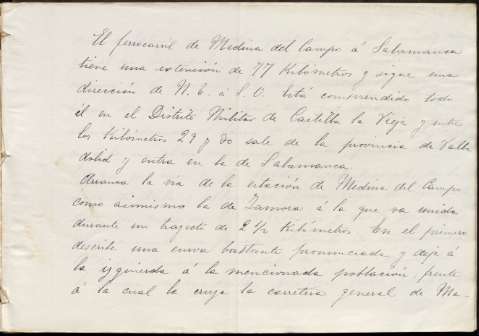 El ferrocarril de Medina del Campo á Salamanca
tiene una extensión de 77 Kilómetros y sigue una
dirección de N. E. á S. O. Está comprendido todo
él en el Distrito Militar de Castilla la Vieja y entre
los Kilómetros 29 y 30 sale de la provincia de Valla
dolid y entra en la de Salamanca.
Arranca la via de la estación de Medina del Campo
como asimismo la de Zamora á la que va unida
durante un trayecto de 2 1/2 Kilómetros. En el primero
describe una curva bastante pronunciada y deja á
la izquierda á la mencionada población, frente
á la cual la cruza la carretera general de Ma-